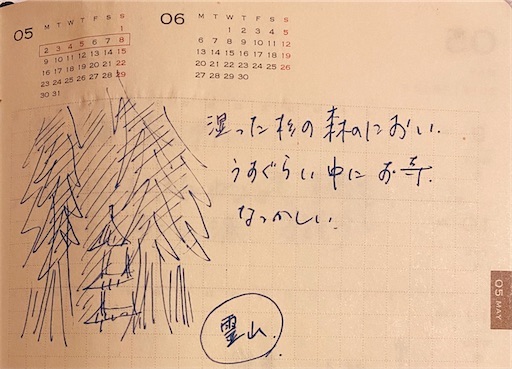 05
M T W T F S S
1
2 3 4 5 6 7 8
9 10 11 12 13 14 15
16 17 18 19 20 21 22
23 24 25 26 27 28 29
30 31
06
M T W T F S S
1 2 3 4 5
6 7 8 9 10 11 12
13 14 15 16 17 18 19
20 21 22 23 24 25 26
27 28 29 30
湿った杉の森のにおい.
うすぐらい中にお寺.
なつかしい.
霊山.
05 MAY